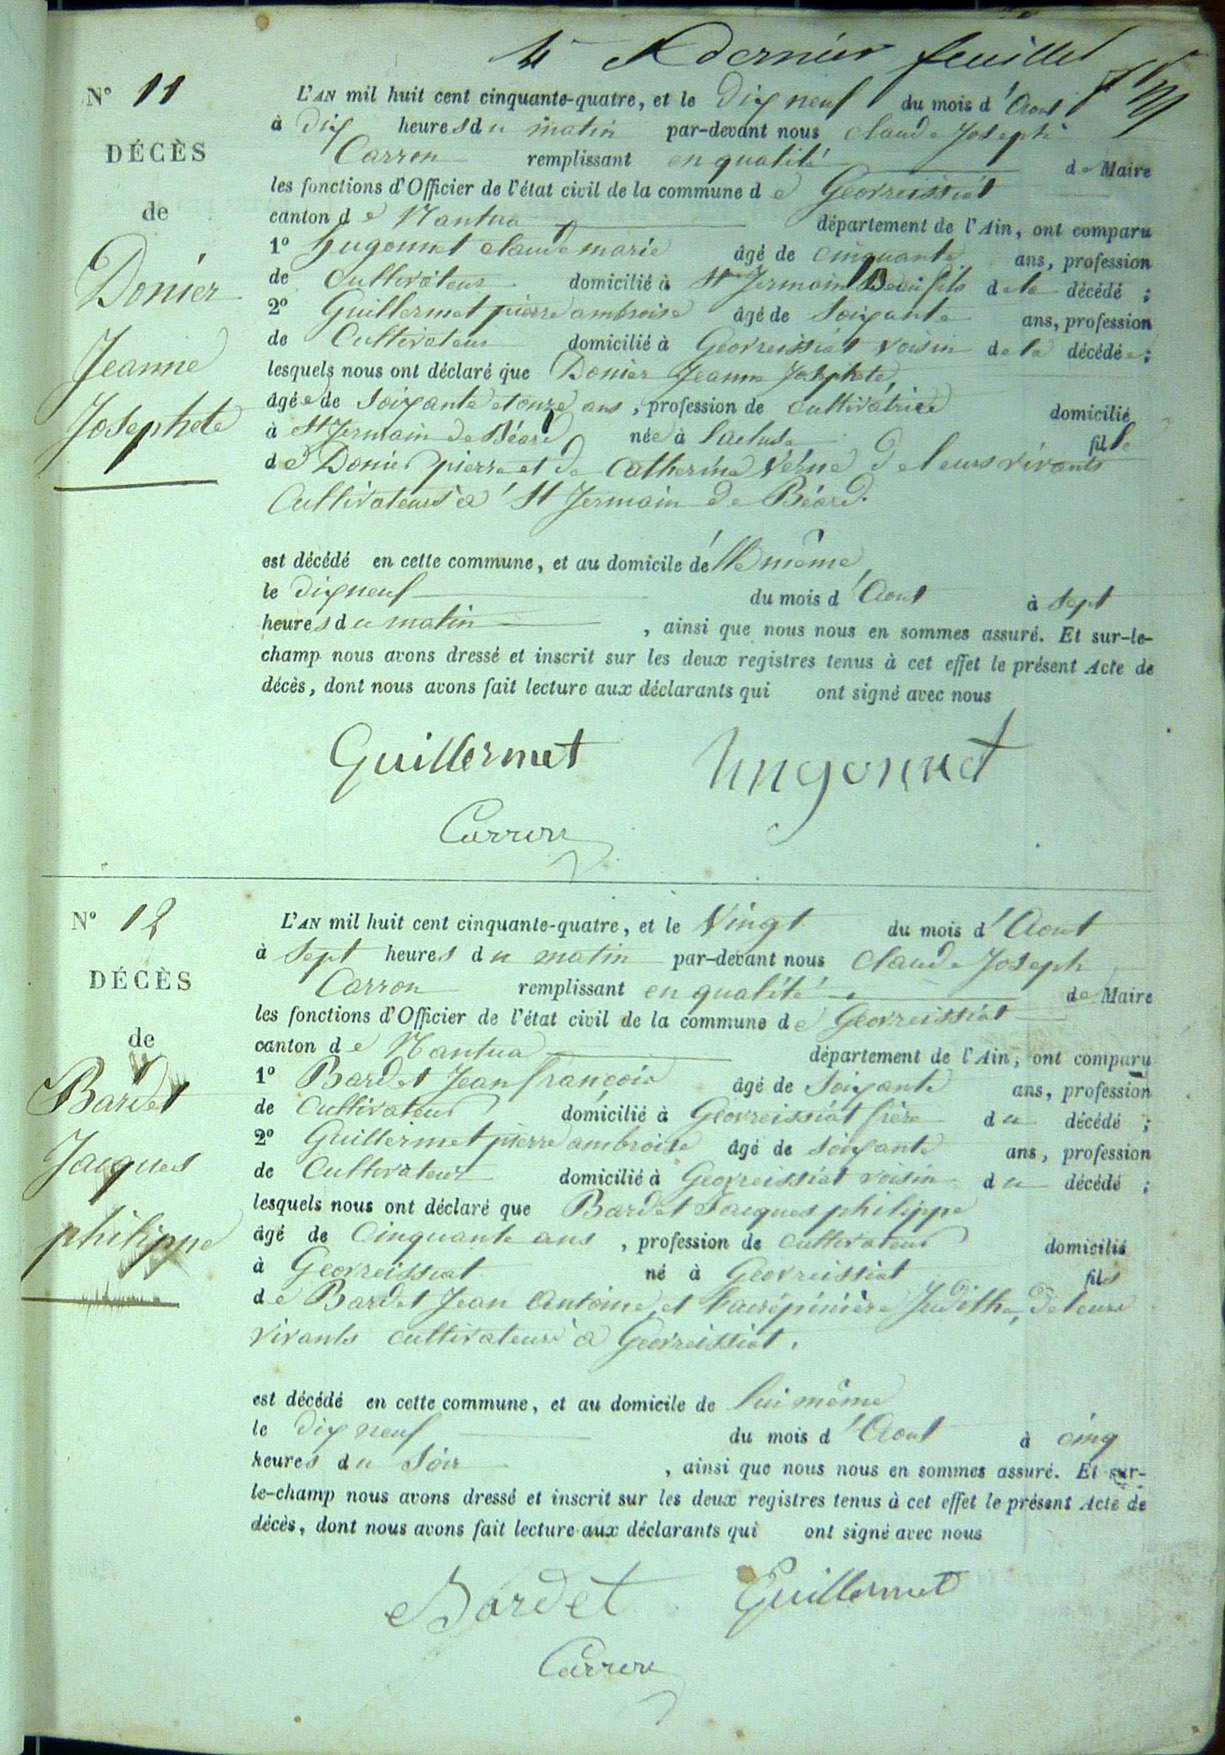 4e et dernier feuillet
N° 11
DÉCÈS
de
Donier
Jeanne
Josephete
L'AN mil huit cent cinquante-quatre, et le dix neuf du mois d'Aout
à dix heures du matin par-devant nous claude Joseph
Carron remplissant en qualité de Maire
les fonctions d'Officier de l'état civil de la commune de Geovreissiat
canton de Nantua département de l'Ain, ont comparu
1° hugonnet claude marie âgé de cinquante ans, profession
de cultivateur domicilié à St Jermain Beau fils de la décédé ;
2° Guillermet pierre ambroise âgé de soixante ans, profession
de Cultivateur domicilié à Geovreissiat voisin de la décédée ;
lesquels nous ont déclaré que Donier Jeanne Josephete
âgée de soixante et onze ans, profession de cultivatrice domicilié
à St Jermain de Béard née à Lacluse fille
de Donier pierre et de Catherine Véné de leurs vivants
Cultivateurs à St Jermain de Béard.
est décédé en cette commune, et au domicile d'elle même
le dix neuf du mois d'Aout à sept
heures du matin, ainsi que nous nous en sommes assuré. Et sur-le-
champ nous avons dressé et inscrit sur les deux registres tenus à cet effet le présent Acte de
décès, dont nous avons fait lecture aux déclarants qui ont signé avec nous
Guillermet hugonnet
Carron
N° 12
DÉCÈS
de
Bardet
Jacques
philippe
L'AN mil huit cent cinquante-quatre, et le Vingt du mois d'Aout
à sept heures du matin par-devant nous claude Joseph
Carron remplissant en qualité de Maire
les fonctions d'Officier de l'état civil de la commune de Geovreissiat
canton de Nantua département de l'Ain, ont comparu
1° Bardet Jean françois âgé de soixante ans, profession
de cultivateur domicilié à Geovreissiat frère du décédé ;
2° Guillermet pierre ambroise âgé de soixante ans, profession
de Cultivateur domicilié à Geovreissiat voisin du décédé ;
lesquels nous ont déclaré que Bardet Jacques philippe
âgé de Cinquante ans, profession de cultivateur domicilié
à Geovreissiat né à Geovreissiat fils
de Bardet Jean Antoine et Judithe, de leurs
vivants cultivateurs à Geovreissiat.
est décédé en cette commune, et au domicile de lui même
le dix neuf du mois d'Aout à cinq
heures du soir, ainsi que nous nous en sommes assuré. Et sur-
le-champ nous avons dressé et inscrit sur les deux registres tenus à cet effet le présent Acte de
décès, dont nous avons fait lecture aux déclarants qui ont signé avec nous
Bardet Guillermet
Carron